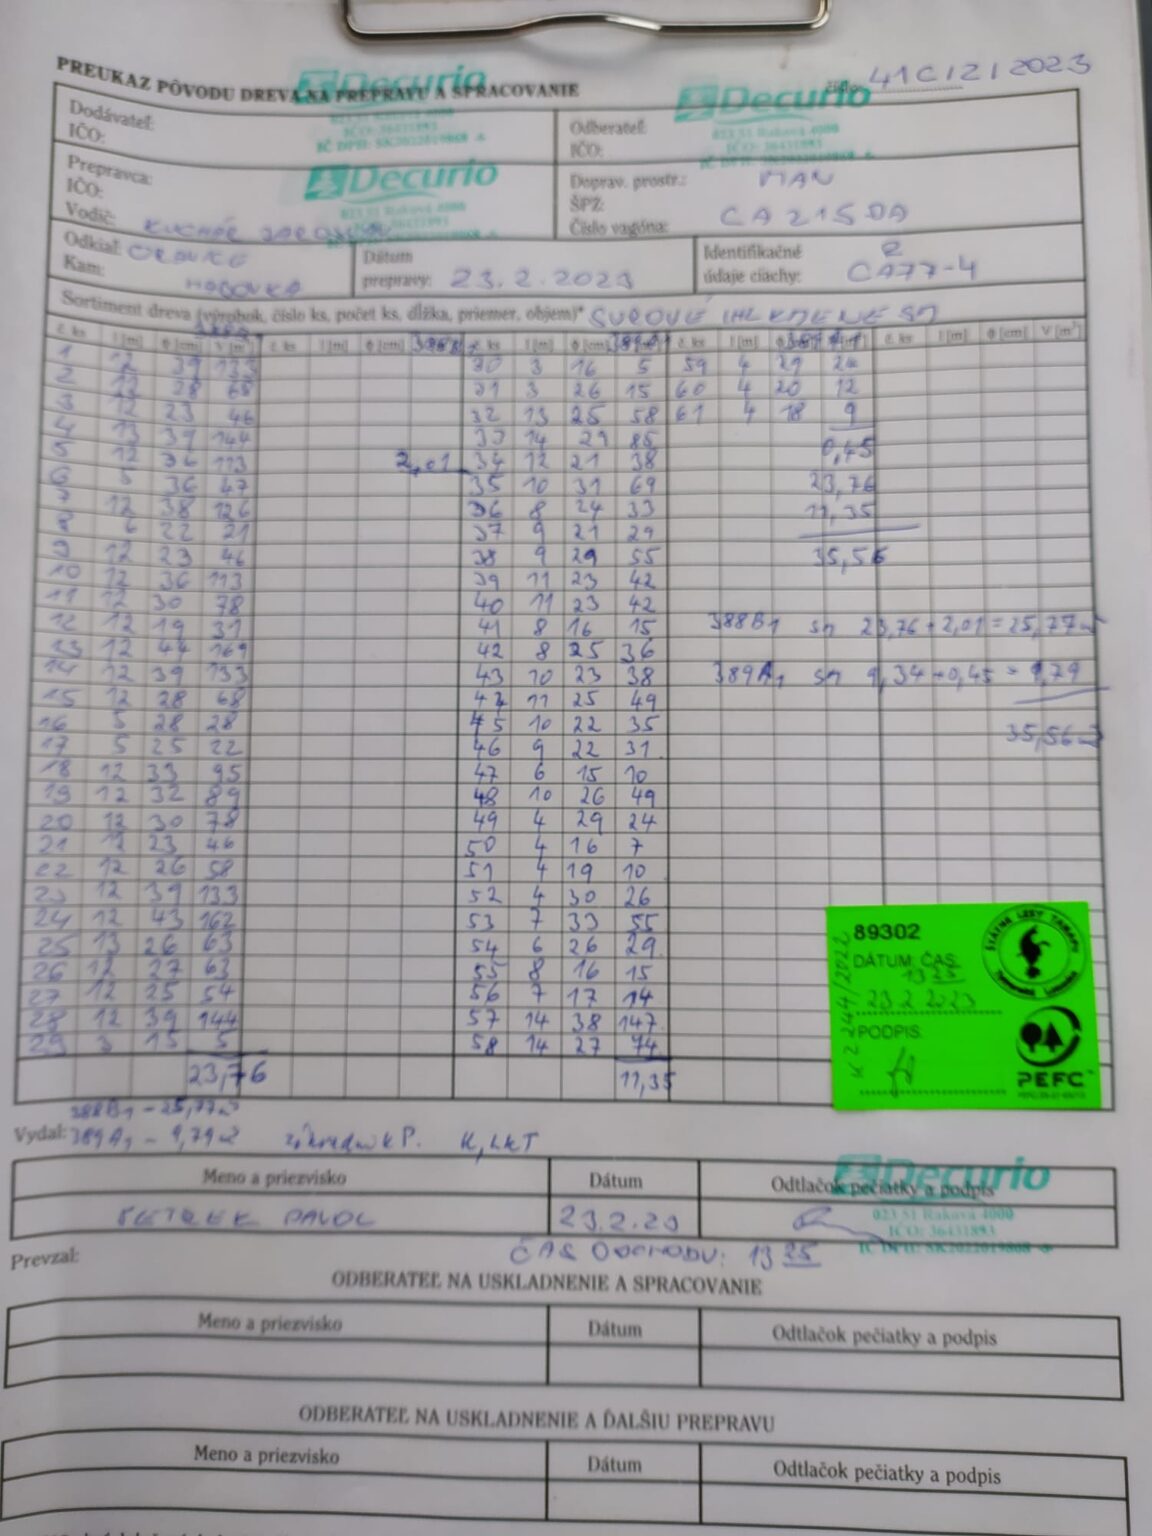 PREUKAZ PÔVODU DREVA NA PREPRAVU A SPRACOVANIE
41C/2/2023
Decurio
Decurio
Dodávateľ:
IČO:
Odberateľ:
IČO:
023 51 Raková 4000
IČO: 36431893
IČ DPH: SK2022019868
Decurio
Prepravca:
IČO:
Vodič:
Doprav. prostr.: MAN
ŠPZ: CA 215 DA
Číslo vagóna:
Odkiaľ: ORAVICE
Kam: HABOVKA
Dátum prepravy: 23.2.2023
Identifikačné údaje ciachy: 2 CA77-4
Sortiment dreva (výrobok, číslo ks, počet ks, dĺžka, priemer, objem)* SUROVÉ IHL KMENE SM
č. ks l [m] ϕ [cm] V [m³] č. ks l [m] ϕ [cm] č. ks l [m] ϕ [cm] č. ks l [m] č. ks l [m] ϕ [cm] V [m³]
1 12 39 133 30 3 16 5 59 4 29 24
2 12 28 68 31 3 26 15 60 4 20 12
3 12 23 46 32 13 25 58 61 4 18 9
4 13 39 144 33 14 29 85 0,45
5 12 36 113 2,01 34 12 21 38
6 5 36 47 35 10 31 69 23,76
7 12 38 126 36 8 24 33 11,35
8 6 22 21 37 9 21 29
9 12 23 46 38 9 29 55 35,56
10 12 36 113 39 11 23 42
11 12 30 78 40 11 23 42
12 12 19 31 41 8 16 15 388B1 sm 23,76 + 2,01 = 25,77
13 12 44 169 42 8 25 36
14 12 39 133 43 10 23 38 389A1 sm 9,34 + 0,45 = 9,79
15 12 28 68 44 11 25 49
16 5 28 28 45 10 22 35 35,56
17 5 25 22 46 9 22 31
18 12 33 95 47 6 15 10
19 12 32 89 48 10 26 49
20 12 30 78 49 4 29 24
21 12 23 46 50 4 16 7
22 12 26 58 51 4 19 10
23 12 39 133 52 4 30 26
24 12 43 162 53 7 33 55
25 13 26 63 54 6 26 29
26 12 27 63 55 8 16 15
27 12 25 54 56 7 17 14
28 12 39 144 57 14 38 147
29 3 15 5 58 14 27 74
23,76 11,35
89302
DÁTUM: ČAS:
13 25
23 2 2023
PODPIS:
ŠTÁTNE LESY TANAPU
PEFC
388B1 - 25,77
Vydal: 389A1 - 9,79
Meno a priezvisko Dátum Odtlačok pečiatky a podpis
PETREK PAVOL 23.2.23
Decurio
023 51 Raková 4000
IČO: 36431893
IČ DPH: SK2022019868
Prevzal: ČAS ODCHODU: 13 25
ODBERATEĽ NA USKLADNENIE A SPRACOVANIE
Meno a priezvisko Dátum Odtlačok pečiatky a podpis
ODBERATEĽ NA USKLADNENIE A ĎALŠIU PREPRAVU
Meno a priezvisko Dátum Odtlačok pečiatky a podpis